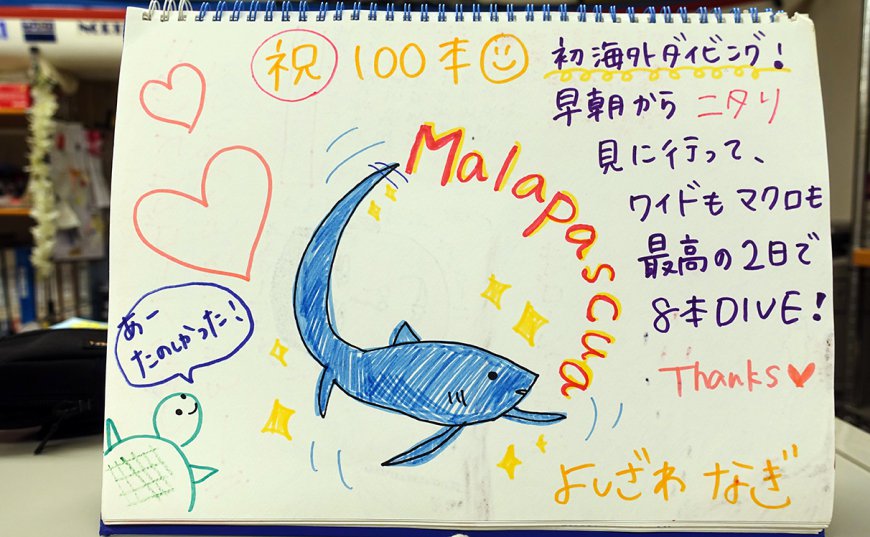 祝 100本
初海外ダイビング!
早朝から ニタリ
見に行って、
ワイドも マクロも
最高の2日で
8本DIVE!
Malapascua
Thanks
あー
たのしかった!
よしざわ なぎ